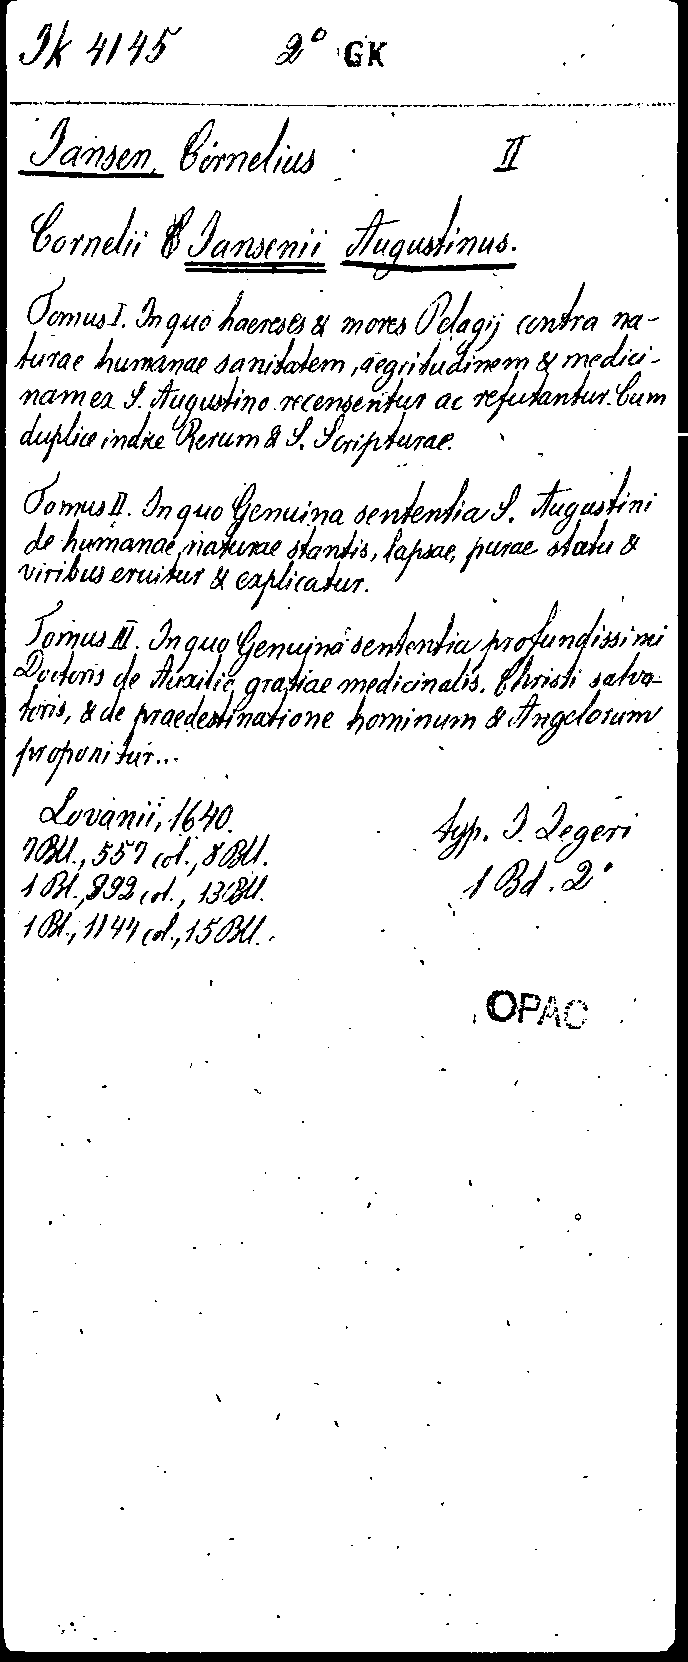 Jk 4145 2° GK
Jansen, Cornelius II
Cornelii Jansenii Augustinus.
Tomus I. In quo haereses & mores Pelagij contra na-
turae humanae sanitatem, aegritudinem & medici-
nam ex S. Augustino recensentur ac refutantur. Cum
duplice indice Rerum & S. Scripturae.
Tomus II. In quo Genuina sententia S. Augustini
de humanae naturae stantis, lapsae, purae statu &
viribus eruitur & explicatur.
Tomus III. In quo Genuina sententia profundissimi
Doctoris de Auxilio gratiae medicinalis. Christi salva-
toris, & de praedestinatione hominum & Angelorum
proponitur...
Lovanii, 1640. typ. J. Zegeri
7 Bll., 557 col., 8 Bll. 1 Bd. 2°
1 Bl., 892 col., 13 Bll.
1 Bl., 1144 col., 15 Bll.
OPAC